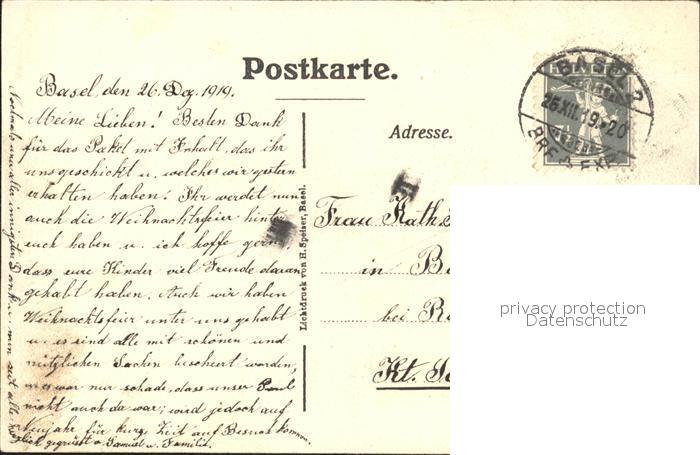 Postkarte.
Basel, den 26. Dez. 1919.
Meine Lieben! Besten Dank
für das Paket mit Inhalt, das ihr
uns geschickt u. welches wir gestern
erhalten haben. Ihr werdet nun
auch die Weihnachtsfeier hinter
euch haben u. ich hoffe gern,
dass eure Kinder viel Freude daran
gehabt haben. Auch wir haben
Weihnachtsfeier unter uns gehabt
u. es sind alle mit schönen und
nützlichen Sachen beschert worden,
nur schade, dass unser Paul
nicht auch da war; wird jedoch auf
Neujahr für kurze Zeit auf Besuch kommen.
gegrüsst v. Samuel u. Familie.
Nochmals
innigsten Dank
Lichtdruck von H. Speiser, Basel.
Adresse.
BASEL 2
26.XII.19.-20
BRF. EXP.
Frau Kath.
in B
bei R
Kt.
privacy protection
Datenschutz